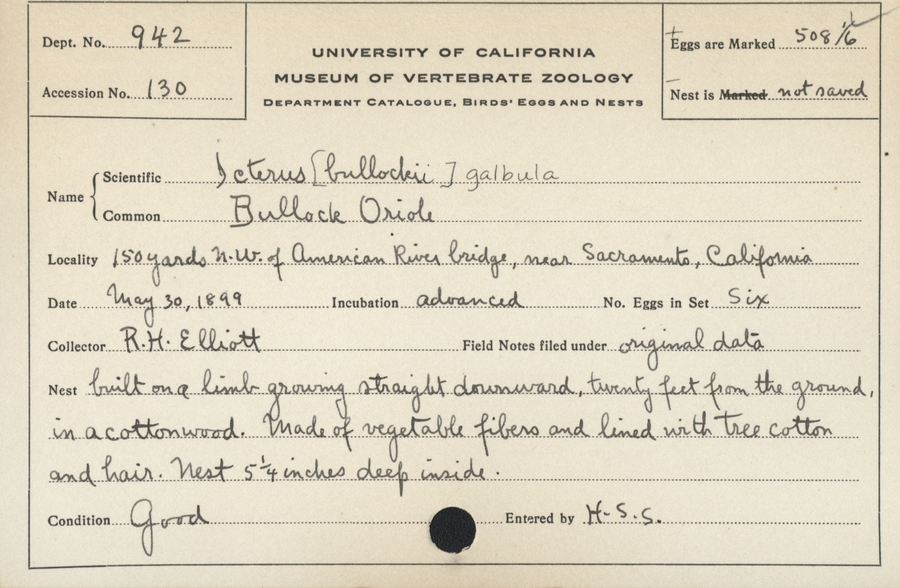 Dept. No. 942
Accession No. 130
UNIVERSITY OF CALIFORNIA
MUSEUM OF VERTEBRATE ZOOLOGY
DEPARTMENT CATALOGUE, BIRDS' EGGS AND NESTS
Eggs are Marked 508/6
Nest is Marked not saved
Name
Scientific Icterus [bullockii] galbula
Common Bullock Oriole
Locality 150 yards N.W. of American River bridge, near Sacramento, California
Date May 30, 1899 Incubation advanced No. Eggs in Set Six
Collector R.H. Elliott Field Notes filed under original data
Nest built on a limb growing straight downward, twenty feet from the ground,
in a cottonwood. Made of vegetable fibers and lined with tree cotton
and hair. Nest 5 1/4 inches deep inside.
Condition Good Entered by H-S.S.